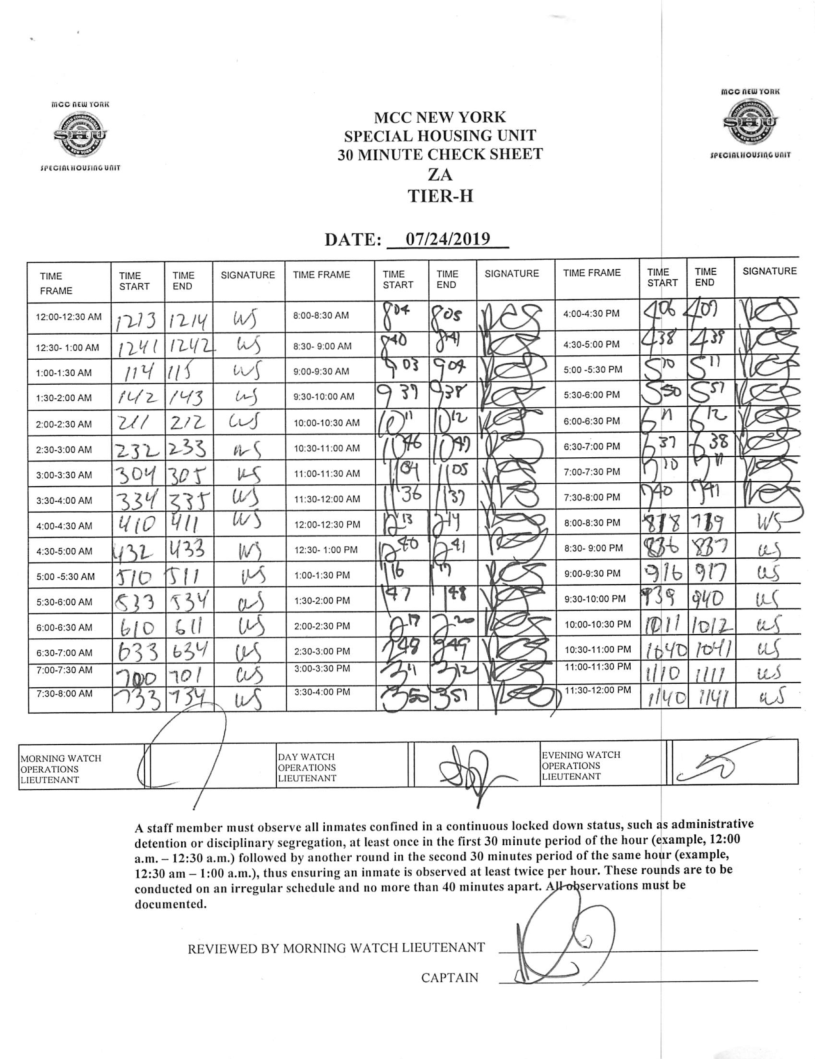 MCC NEW YORK
SHU
SPECIAL HOUSING UNIT
MCC NEW YORK
SHU
SPECIAL HOUSING UNIT
MCC NEW YORK
SPECIAL HOUSING UNIT
30 MINUTE CHECK SHEET
ZA
TIER-H
DATE: 07/24/2019
TIME FRAME TIME START TIME END SIGNATURE TIME FRAME TIME START TIME END SIGNATURE TIME FRAME TIME START TIME END SIGNATURE
12:00-12:30 AM 1213 1214 WS 8:00-8:30 AM 804 805 4:00-4:30 PM 406 407
12:30- 1:00 AM 1241 1242 WS 8:30- 9:00 AM 840 841 4:30-5:00 PM 438 439
1:00-1:30 AM 114 115 WS 9:00-9:30 AM 903 904 5:00 -5:30 PM 510 511
1:30-2:00 AM 142 143 WS 9:30-10:00 AM 937 938 5:30-6:00 PM 550 551
2:00-2:30 AM 211 212 WS 10:00-10:30 AM 1011 1012 6:00-6:30 PM 611 612
2:30-3:00 AM 232 233 WS 10:30-11:00 AM 1046 1047 6:30-7:00 PM 737 738
3:00-3:30 AM 304 305 WS 11:00-11:30 AM 1104 1105 7:00-7:30 PM 710 711
3:30-4:00 AM 334 335 WS 11:30-12:00 AM 1136 1137 7:30-8:00 PM 740 741
4:00-4:30 AM 410 411 WS 12:00-12:30 PM 1213 1214 8:00-8:30 PM 818 WS
4:30-5:00 AM 432 433 WS 12:30- 1:00 PM 1240 1241 8:30- 9:00 PM 836 837 WS
5:00 -5:30 AM 510 511 WS 1:00-1:30 PM 116 117 9:00-9:30 PM 916 917 WS
5:30-6:00 AM 533 534 WS 1:30-2:00 PM 147 148 9:30-10:00 PM 939 940 WS
6:00-6:30 AM 610 611 WS 2:00-2:30 PM 219 220 10:00-10:30 PM 1011 1012 WS
6:30-7:00 AM 633 634 WS 2:30-3:00 PM 248 249 10:30-11:00 PM 1040 1041 WS
7:00-7:30 AM 700 701 WS 3:00-3:30 PM 311 312 11:00-11:30 PM 1110 1111 WS
7:30-8:00 AM 733 734 WS 3:30-4:00 PM 350 351 11:30-12:00 PM 1140 1141 WS
MORNING WATCH OPERATIONS LIEUTENANT DAY WATCH OPERATIONS LIEUTENANT EVENING WATCH OPERATIONS LIEUTENANT
A staff member must observe all inmates confined in a continuous locked down status, such as administrative
detention or disciplinary segregation, at least once in the first 30 minute period of the hour (example, 12:00
a.m. – 12:30 a.m.) followed by another round in the second 30 minutes period of the same hour (example,
12:30 am – 1:00 a.m.), thus ensuring an inmate is observed at least twice per hour. These rounds are to be
conducted on an irregular schedule and no more than 40 minutes apart. All observations must be
documented.
REVIEWED BY MORNING WATCH LIEUTENANT
CAPTAIN